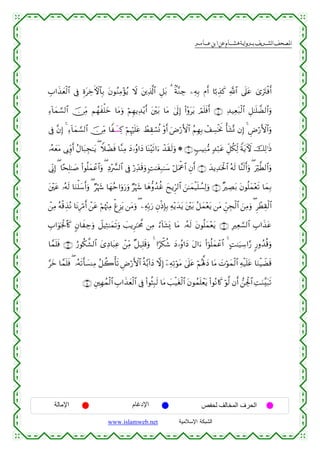 المصحف الشريف برواية هشام عن ابن عامر
أَفْتَرَىٰ عَلَى ٱللَّهِ كَذِبًا أَم بِهِۦ جِنَّةٌۢ ۗ بَلِ ٱلَّذِينَ لَا يُؤْمِنُونَ بِٱلْأَخِرَةِ فِى ٱلْعَذَابِ
وَٱلضَّلَٰلِ ٱلْبَعِيدِ ۝ أَفَلَمْ يَرَوْا۟ إِلَىٰ مَا بَيْنَ أَيْدِيهِمْ وَمَا خَلْفَهُم مِّنَ ٱلسَّمَآءِ
وَٱلْأَرْضِ ۚ إِن نَّشَأْ نَخْسِفْ بِهِمُ ٱلْأَرْضَ أَوْ نُسْقِطْ عَلَيْهِمْ كِسْفًا مِّنَ ٱلسَّمَآءِ ۚ إِنَّ فِى
ذَٰلِكَ لَأَيَةً لِّكُلِّ عَبْدٍ مُّنِيبٍ ۝ ۞ وَلَقَدْ ءَاتَيْنَا دَاوُۥدَ مِنَّا فَضْلًا ۖ يَٰجِبَالُ أَوِّبِى مَعَهُۥ
وَٱلطَّيْرَ ۖ وَأَلَنَّا لَهُ ٱلْحَدِيدَ ۝ أَنِ ٱعْمَلْ سَٰبِغَٰتٍ وَقَدِّرْ فِى ٱلسَّرْدِ ۖ وَٱعْمَلُوا۟ صَٰلِحًا ۖ إِنِّى
بِمَا تَعْمَلُونَ بَصِيرٌ ۝ وَلِسُلَيْمَٰنَ ٱلرِّيحَ غُدُوُّهَا شَهْرٌ وَرَوَاحُهَا شَهْرٌ ۖ وَأَسَلْنَا لَهُۥ عَيْنَ
ٱلْقِطْرِ ۖ وَمِنَ ٱلْجِنِّ مَن يَعْمَلُ بَيْنَ يَدَيْهِ بِإِذْنِ رَبِّهِۦ ۖ وَمَن يَزِغْ مِنْهُمْ عَنْ أَمْرِنَا نُذِقْهُ مِنْ
عَذَابِ ٱلسَّعِيرِ ۝ يَعْمَلُونَ لَهُۥ مَا يَشَآءُ مِن مَّحَٰرِيبَ وَتَمَٰثِيلَ وَجِفَانٍ كَٱلْجَوَابِ
وَقُدُورٍ رَّاسِيَٰتٍ ۚ ٱعْمَلُوٓا۟ ءَالَ دَاوُۥدَ شُكْرًا ۚ وَقَلِيلٌ مِّنْ عِبَادِىَ ٱلشَّكُورُ ۝ فَلَمَّا
قَضَيْنَا عَلَيْهِ ٱلْمَوْتَ مَا دَلَّهُمْ عَلَىٰ مَوْتِهِۦٓ إِلَّا دَآبَّةُ ٱلْأَرْضِ تَأْكُلُ مِنسَأَتَهُۥ ۖ فَلَمَّا خَرَّ
تَبَيَّنَتِ ٱلْجِنُّ أَن لَّوْ كَانُوا۟ يَعْلَمُونَ ٱلْغَيْبَ مَا لَبِثُوا۟ فِى ٱلْعَذَابِ ٱلْمُهِينِ ۝
الحرف المخالف لحفص الإدغام الإمالة
الشبكة الإسلامية www.islamweb.net